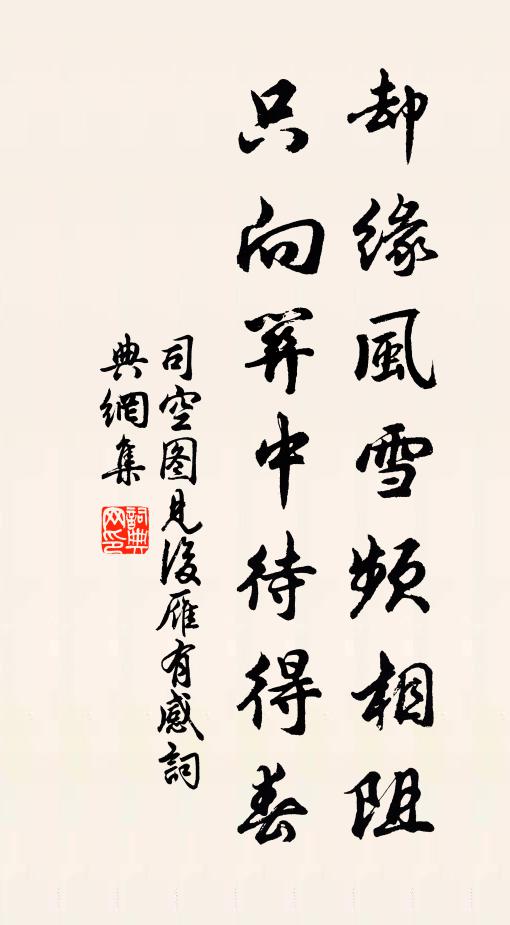 却缘風雪频相阻
只向關中待得春
司空图見後雁有感詞
典網集
詞典
网印